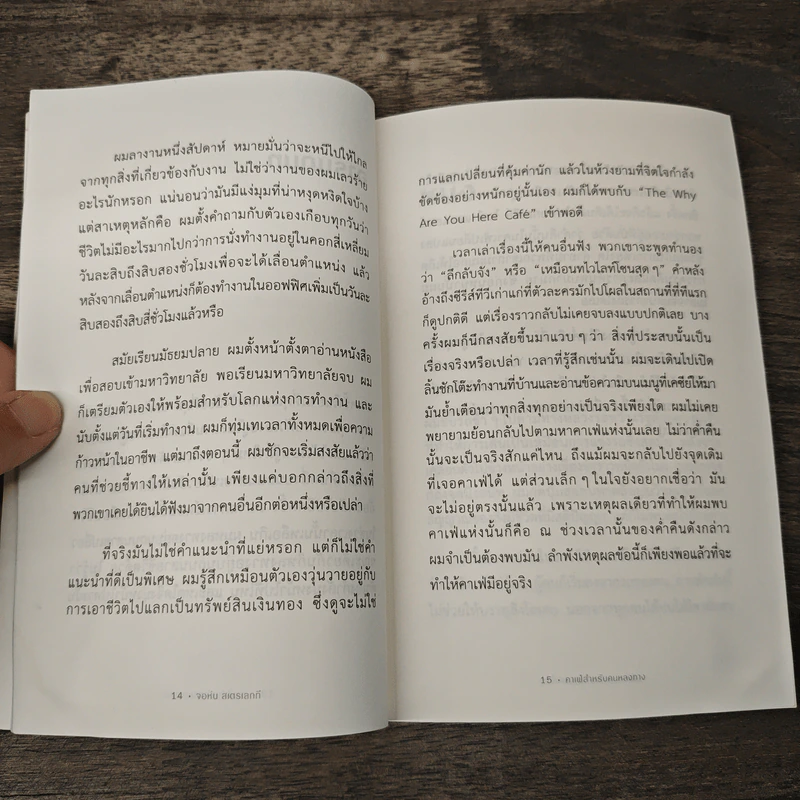 ผมลางานหนึ่งสัปดาห์ หมายมั่นว่าจะหนีไปให้ไกล
จากทุกสิ่งที่เกี่ยวข้องกับงาน ไม่ใช่ว่างานของผมเลวร้าย
อะไรนักหรอก แน่นอนว่ามันมีแง่มุมที่น่าหงุดหงิดใจบ้าง
แต่สาเหตุหลักคือ ผมตั้งคำถามกับตัวเองเกือบทุกวันว่า
ชีวิตไม่มีอะไรมากไปกว่าการนั่งทำงานอยู่ในคอกสี่เหลี่ยม
วันละสิบถึงสิบสองชั่วโมงเพื่อจะได้เลื่อนตำแหน่ง แล้ว
หลังจากเลื่อนตำแหน่งก็ต้องทำงานในออฟฟิศเพิ่มเป็นวันละ
สิบสองถึงสิบสี่ชั่วโมงแล้วหรือ
สมัยเรียนมัธยมปลาย ผมตั้งหน้าตั้งตาอ่านหนังสือ
เพื่อสอบเข้ามหาวิทยาลัย พอเรียนมหาวิทยาลัยจบ ผม
ก็เตรียมตัวเองให้พร้อมสำหรับโลกแห่งการทำงาน และ
นับตั้งแต่วันที่เริ่มทำงาน ผมก็ทุ่มเทเวลาทั้งหมดเพื่อความ
ก้าวหน้าในอาชีพ แต่มาถึงตอนนี้ ผมชักจะเริ่มสงสัยแล้วว่า
คนที่ช่วยชี้ทางให้เหล่านั้น เพียงแค่บอกกล่าวถึงสิ่งที่
พวกเขาเคยได้ยินได้ฟังมาจากคนอื่นอีกต่อหนึ่งหรือเปล่า
ที่จริงมันไม่ใช่คำแนะนำที่แย่หรอก แต่ก็ไม่ใช่คำ
แนะนำที่ดีเป็นพิเศษ ผมรู้สึกเหมือนตัวเองวุ่นวายอยู่กับ
การเอาชีวิตไปแลกเป็นทรัพย์สินเงินทอง ซึ่งดูจะไม่ใช่
14 • จอห์น สเตรเลกกี
การแลกเปลี่ยนที่คุ้มค่านัก แล้วในห้วงยามที่จิตใจกำลัง
ขัดข้องอย่างหนักอยู่นั้นเอง ผมก็ได้พบกับ "The Why
Are You Here Café" เข้าพอดี
เวลาเล่าเรื่องนี้ให้คนอื่นฟัง พวกเขาจะพูดทำนอง
ว่า "ลึกลับจัง" หรือ "เหมือนทไวไลท์โซนสุด ๆ" คำหลัง
อ้างถึงซีรีส์ทีวีเก่าแก่ที่ตัวละครมักไปโผล่ในสถานที่ที่ทีแรก
ก็ดูปกติดี แต่เรื่องราวกลับไม่เคยจบลงแบบปกติเลย บาง
ครั้งผมก็นึกสงสัยขึ้นมาแวบ ๆ ว่า สิ่งที่ประสบนั้นเป็น
เรื่องจริงหรือเปล่า เวลาที่รู้สึกเช่นนั้น ผมจะเดินไปเปิด
ลิ้นชักโต๊ะทำงานที่บ้านและอ่านข้อความบนเมนูที่เคซีย์ให้มา
มันย้ำเตือนว่าทุกสิ่งทุกอย่างเป็นจริงเพียงใด ผมไม่เคย
พยายามย้อนกลับไปตามหาคาเฟ่แห่งนั้นเลย ไม่ว่าค่ำคืน
นั้นจะเป็นจริงสักแค่ไหน ถึงแม้ผมจะกลับไปยังจุดเดิม
ที่เจอคาเฟ่ได้ แต่ส่วนเล็ก ๆ ในใจยังอยากเชื่อว่า มัน
จะไม่อยู่ตรงนั้นแล้ว เพราะเหตุผลเดียวที่ทำให้ผมพบ
คาเฟ่แห่งนั้นก็คือ ณ ช่วงเวลานั้นของค่ำคืนดังกล่าว
ผมจำเป็นต้องพบมัน ลำพังเหตุผลข้อนี้ก็เพียงพอแล้วที่จะ
ทำให้คาเฟ่มีอยู่จริง
15 • คาเฟ่สำหรับคนหลงทาง